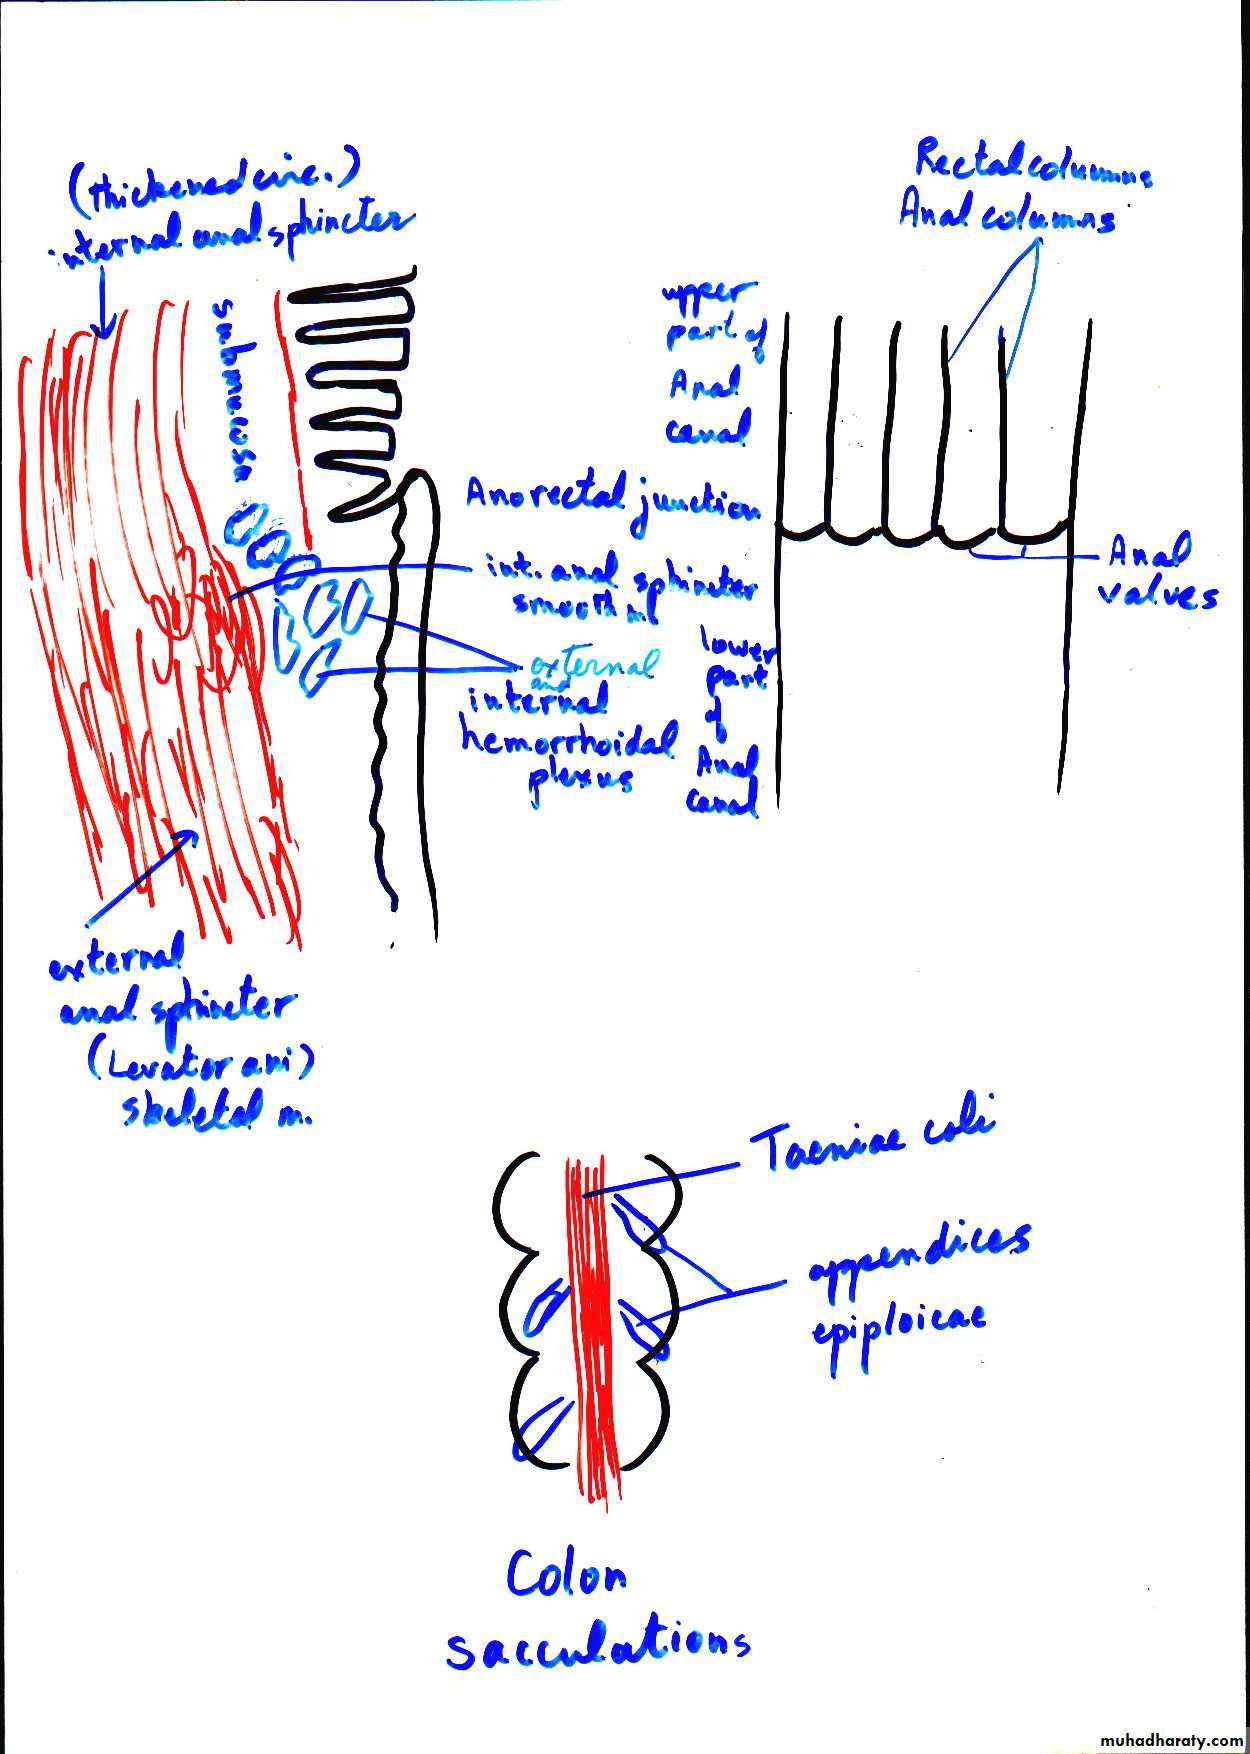 (thickened circ.)
internal anal sphincter
submucosa
Anorectal junction
int. anal sphincter
smooth ml
external
and
internal
hemorrhoidal
plexus
external
anal sphincter
(Levator ani)
skeletal m.
Rectal columns
Anal columns
upper
part of
Anal
canal
Anal
valves
lower
part
of
Anal
canal
Taeniae coli
appendices
epiploicae
Colon
sacculations
muhadharaty.com